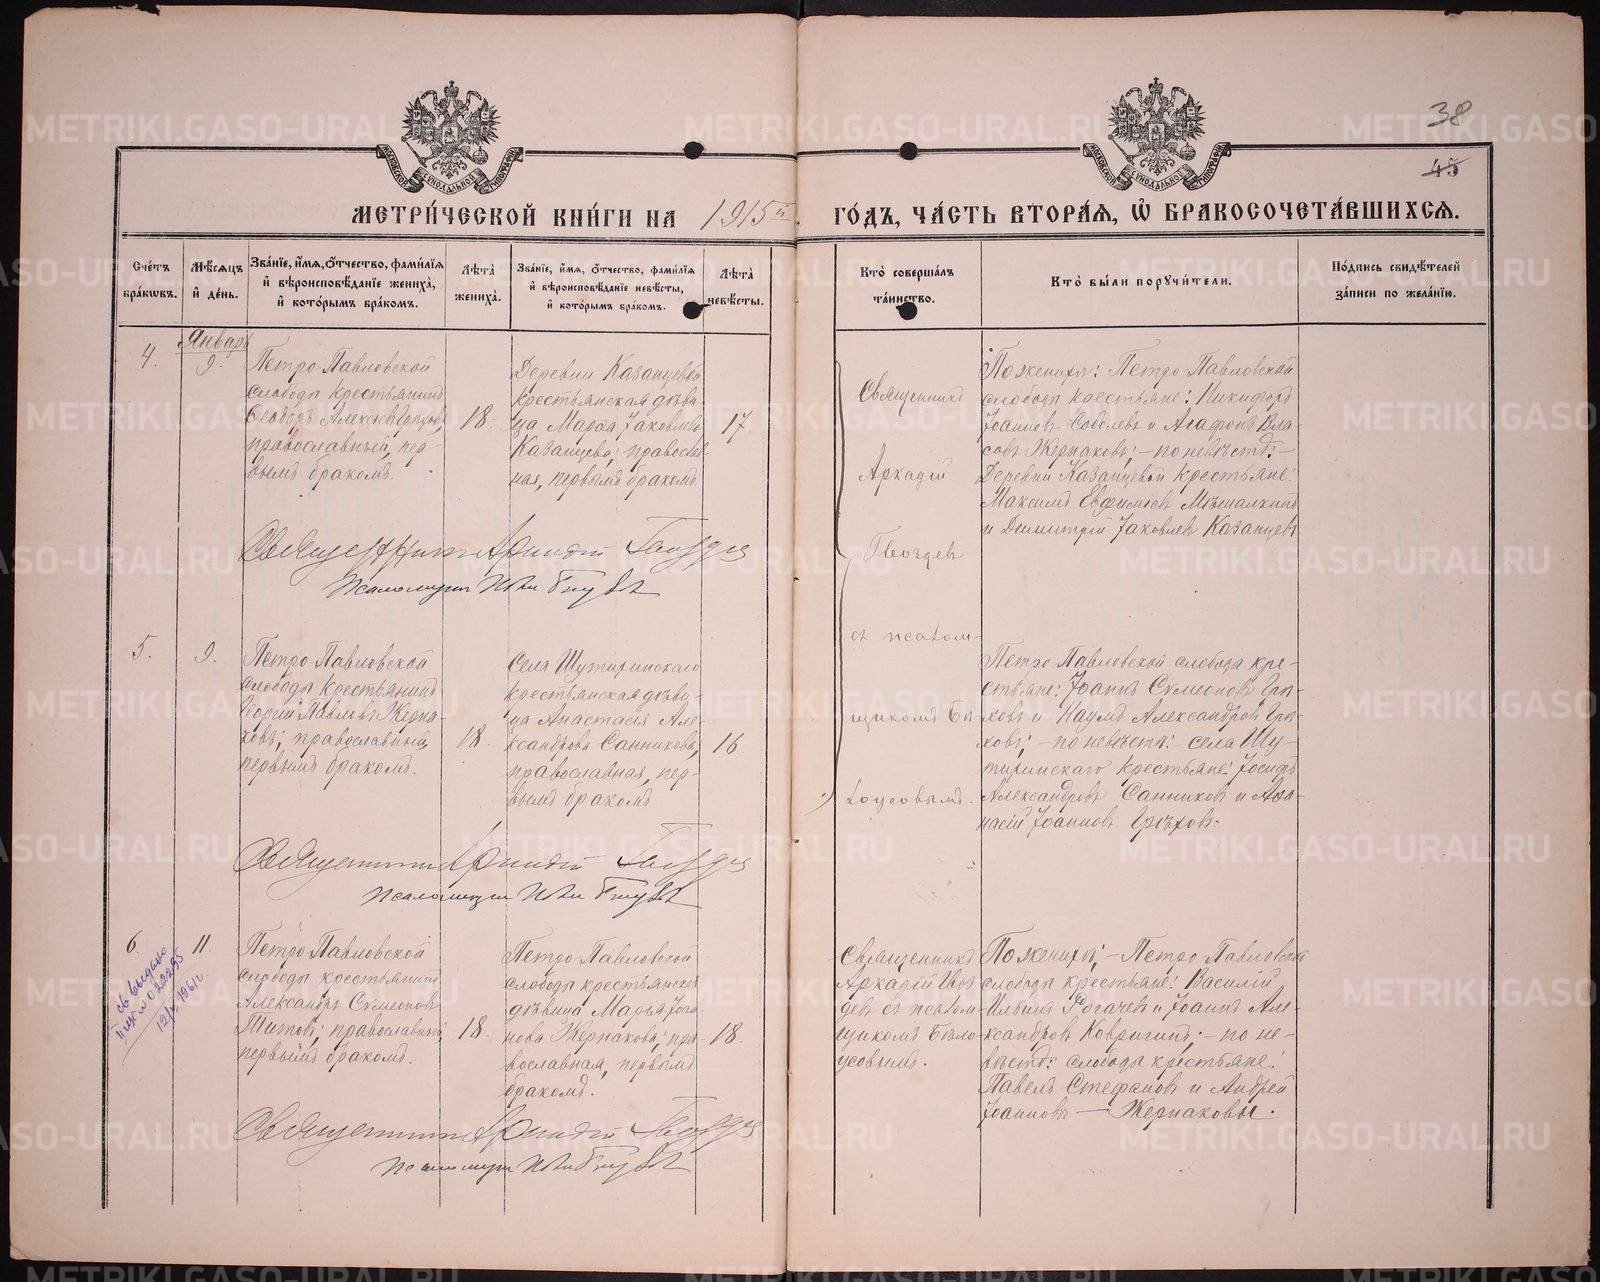 38
45
МЕТРИ́ЧЕСКОЙ КНИ́ГИ НА 1915й
ГО́ДЪ, ЧА́СТЬ ВТОРА́Я, Ѡ БРАКОСОЧЕТА́ВШИХСЯ.
Сче́тъ бра́кωвъ.
Мѣ́сяцъ и҆ де́нь.
Зва́нїе, и҆́мя, ѻ҆́тчество, фами́лїя
и҆ вѣроисповѣ́данїе жениха̀,
и҆ кото́рымъ бра́комъ.
Лѣ́та̀ жениха̀.
Зва́нїе, и҆́мя, ѻ҆́тчество, фами́лїя
и҆ вѣроисповѣ́данїе невѣ́сты,
и҆ кото́рымъ бра́комъ.
Лѣ́та̀ невѣ́сты.
Кто̀ соверша́лъ
та́инство.
Кто̀ бы́ли порꙋчи́тели.
По́дпись свидѣ́телей
за́писи по жела́нїю.
Январь
4.
9.
Петро-Павловской
слободы крестьянинъ
православный, пер-
вымъ бракомъ.
18
Деревни Казанцевой
крестьянская дѣви-
ца Марѳа Іаковлева
Казанцева; православ-
ная, первымъ бракомъ
17
Священникъ
Аркадій
Гвоздев
съ псалом-
щикомъ Бѣ-
лоусовымъ.
По женихѣ: Петро Павловской
слободы крестьяне: Никифоръ
Іоанновъ Соболевъ и Агафонъ Вла-
совъ Жернаковъ; — по невѣстѣ: —
Деревни Казанцевой крестьяне:
Максимъ Евфимьевъ
и Димитрій Іаковлевъ Казанцевъ
Священникъ Аркадій Гвоздев
Псаломщик
5.
9.
Петро-Павловской
слободы крестьянинъ
Георгій Павловъ Жерна-
ковъ; православный,
первымъ бракомъ.
18.
Села Шутинскаго
крестьянская дѣви-
ца Анастасія Але-
ксандрова Санникова;
православная, пер-
вымъ бракомъ
16
Петро Павловской слободы кре-
стьяне: Іоаннъ Сѵмеоновъ Грѣ-
ховъ и Наумъ Александровъ Грѣ-
ховъ; — по невѣстѣ: — села Шу-
тинскаго крестьяне: Іосифъ
Александровъ Санниковъ и Аѳа-
насій Іоанновъ Грѣховъ.
Священникъ Аркадій Гвоздев
Псаломщик
6.
11.
св выдано
12/X 1961г.
Петро-Павловской
слободы крестьянинъ
Александръ Сѵмеоновъ
Титовъ; православный,
первымъ бракомъ.
18.
Петро-Павловской
слободы крестьянская
дѣвица Марья Іоан-
нова Жернакова; пра-
вославная, первымъ
бракомъ.
18.
Священникъ
Аркадій Гвоз
девъ съ псалом-
щикомъ Бѣло-
усовымъ.
По женихѣ; — Петро Павловской
слободы крестьяне: Василій
Ильинъ Рогачевъ и Іоаннъ Але-
ксандровъ Ковригинъ; — по не-
вѣстѣ: слободы крестьяне:
Павелъ Стефановъ и Андрей
Іоанновъ — Жернаковы.
Священникъ Аркадій Гвоздев
Псаломщик
METRIKI.GASO-URAL.RU